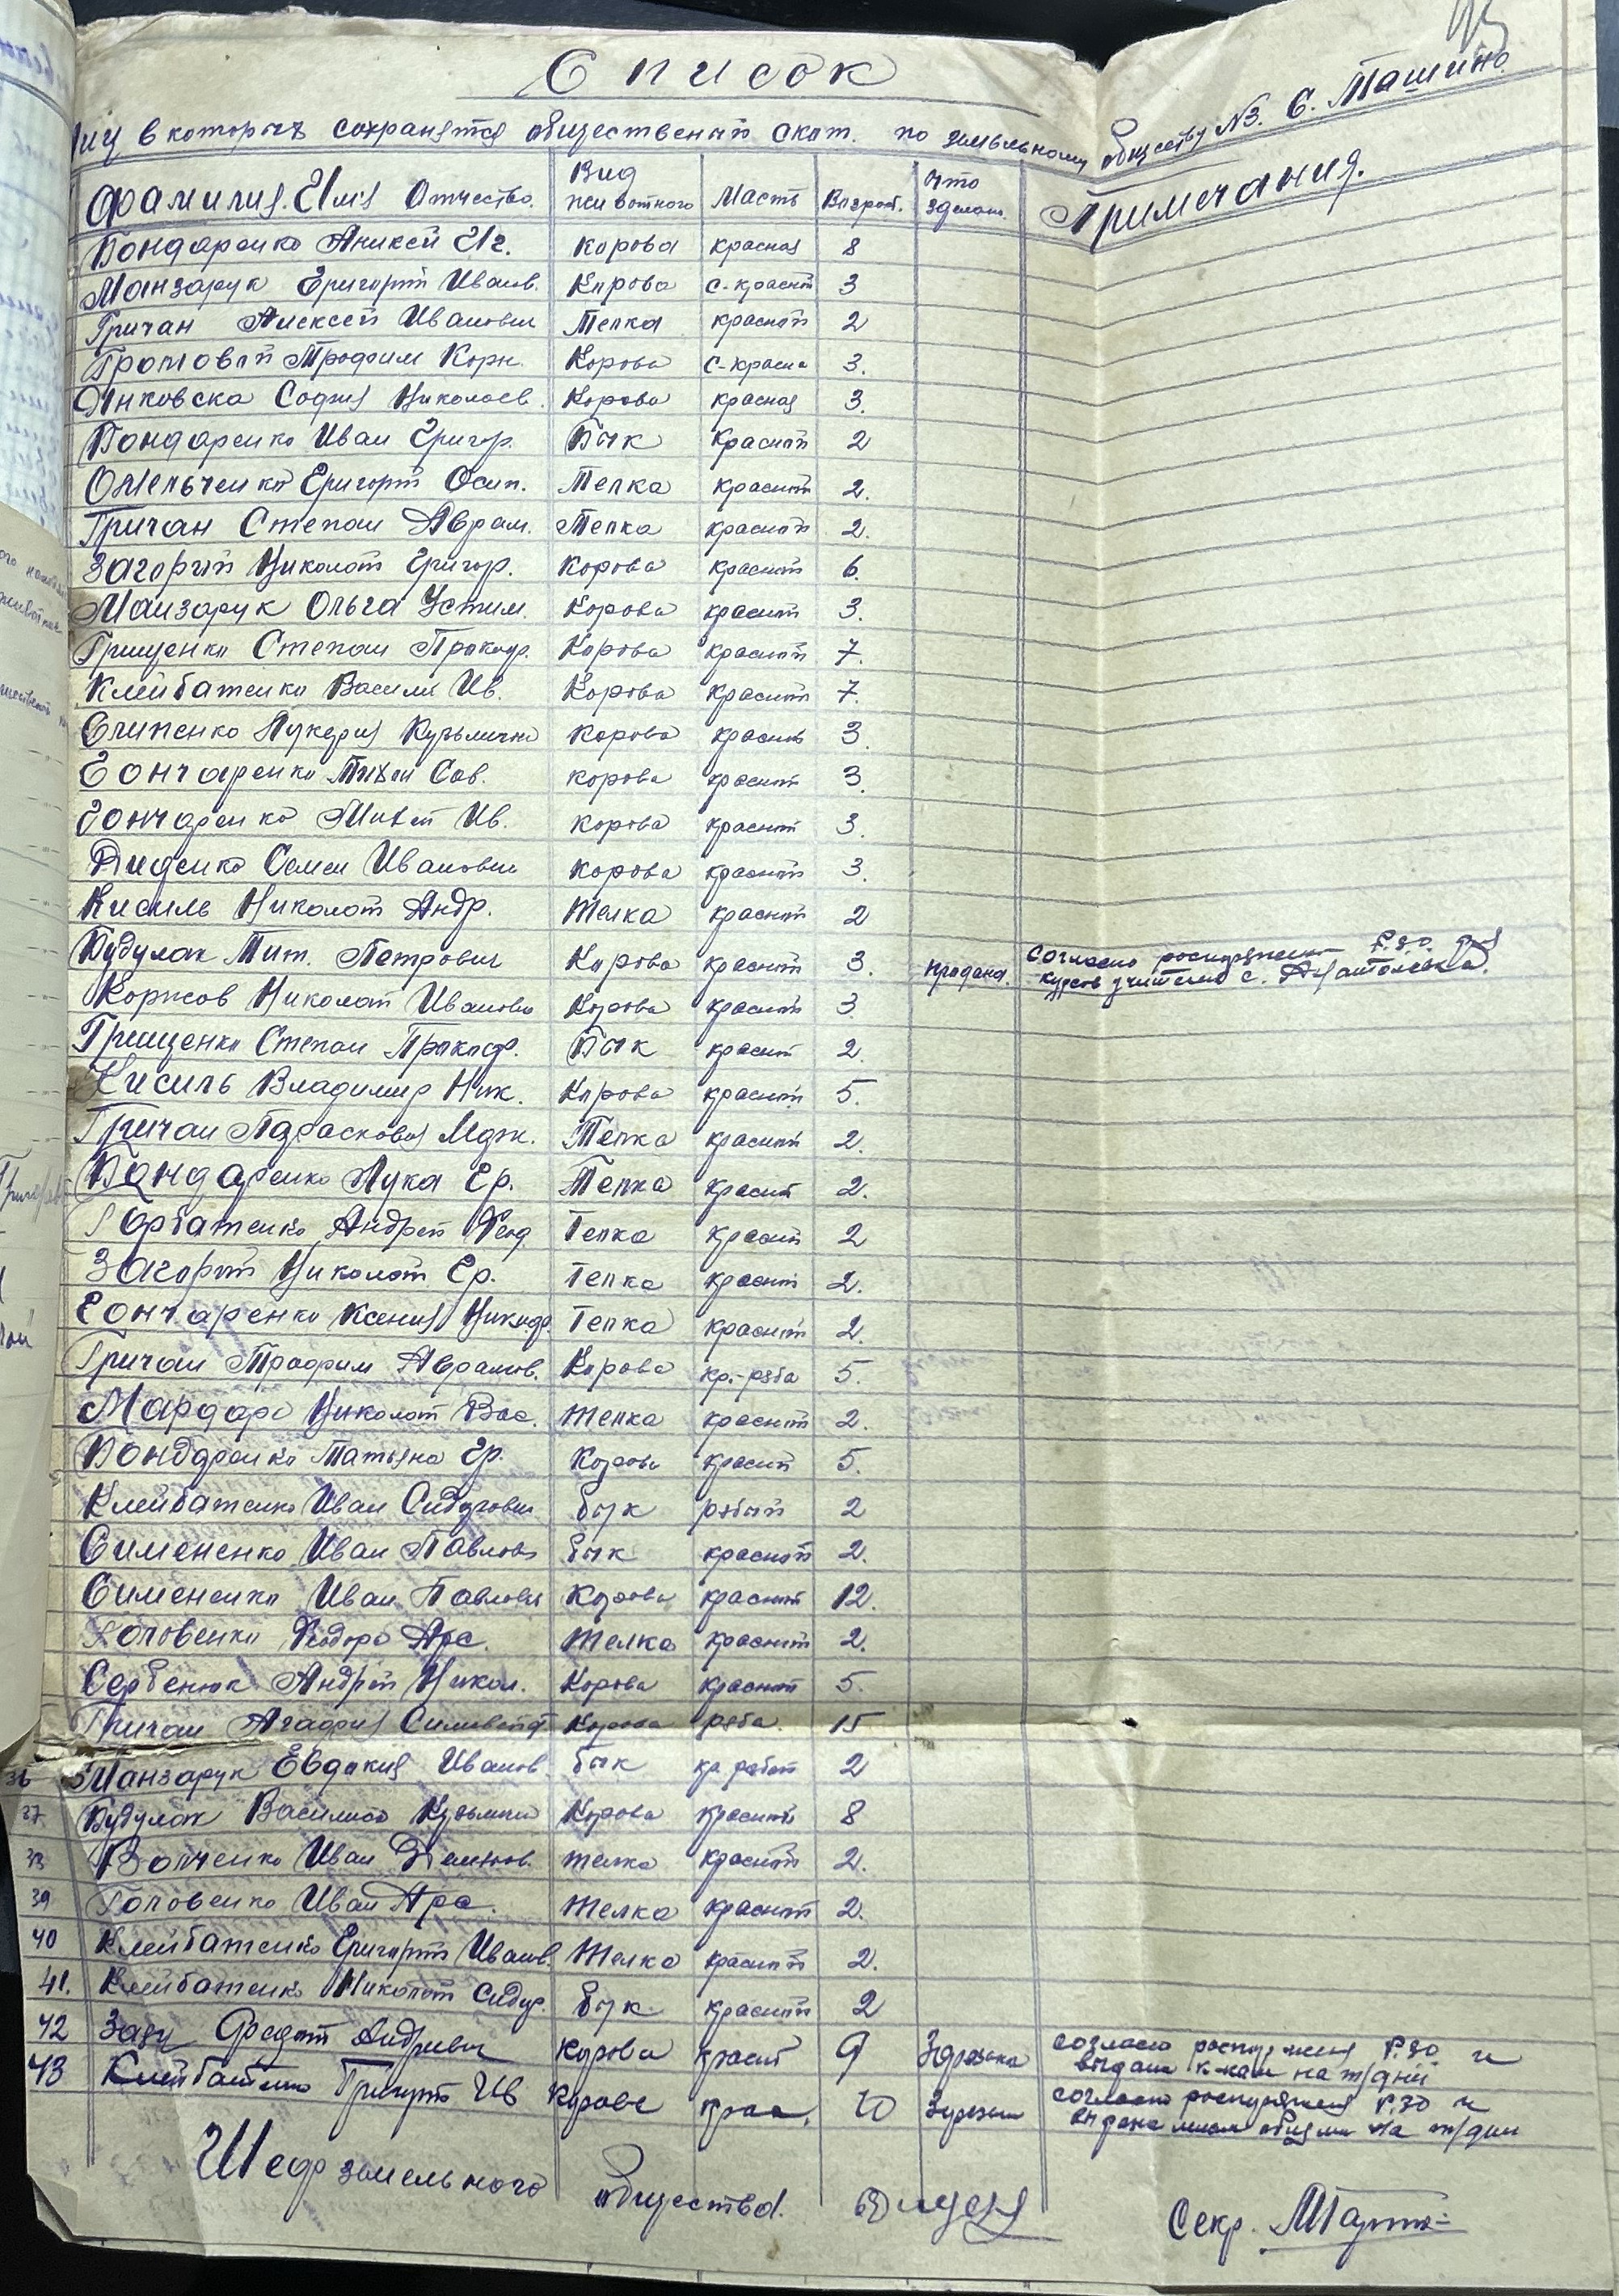 Список
лиц в которых сохраняется общественный скот. по земельному обществу №3. С. Ташино.
Фамилия. Имя Отчество. Вид животного Масть Возраст. Что сделан. Примечания.
Бондаренко Аликсей Иг. Корова красная 8
Манзарук Григорий Иванов. Корова с-красной 3
Гричан Алексей Иванович Телка красной 2
Громовый Трофим Корн. Корова с-красна 3.
Янковска София Николаев. Корова красная 3.
Бондаренко Иван Григор. Бык Красный 2
Омельченко Григорий Осип. Телка красный 2.
Гричан Степан Аврам. Телка красный 2.
Загорый Николай Григор. Корова красный 6.
Манзарук Ольга Устим. Корова красный 3.
Грищенко Степан Прокоф. Корова красный 7.
Клейбатенко Васили Ив. Корова красный 7.
Слипенко Лукерия Кузьминична Корова красный 3.
Гончаренко Михаи Сав. корова красный 3.
Гончаренко Михей Ив. корова красный 3.
Диденко Семен Иванович корова красный 3.
Кисиль Николай Андр. телка красный 2
Будулак Мит. Петрович Корова красный 3. продана. Согласно распоряжения Р.ЗО. для
курсов учителей с. Анатолевка.
Коржов Николай Иванович Корова красный 3
Грищенко Степан Прокоф. Бык красный 2.
Кисиль Владимир Ник. Корова красный 5.
Гричан Параскова Мдж. Телка красный 2.
Бондаренко Лука Гр. Телка красный 2.
Горбатенко Андрей Феод. Телка красный 2
Загорый Николай Гр. Телка красный 2.
Гончаренко Ксения Никифр. Телка красный 2.
Гричан Трофим Аврамов. Корова кр.-ряба 5.
Мардарь Николай Вас. телка красный 2.
Бондаренко Татьяна Гр. Корова красный 5.
Клейбатенко Иван Сидорович бык рябый 2
Симененко Иван Павлов бык красной 2.
Сименеико Иван Павлович Корова красный 12.
Головенко Федора Арс. телка красный 2.
Сербенюк Андрей Никол. Корова красный 5.
Гричан Агафия Корова ряба. 15
36 Манзарук Евдокия Иванов. бык кр. рябой 2
37 Будулак Василиса Кузьмин Корова красный 8
38 Волченко Иван Демянов. телка красный 2.
39 Головенко Иван Арс. телка красный 2.
40 Клейбатенко Григорий Иванов. телка красный 2.
41. Клейбатенко Николай Сидор. бык красный 2
42 Андреевич Корова красный 9 согласно распоряжения Р.ЗО и
выдана на т/дни
43 Клейбатенко Григорий Ив Корова крас. 10 согласно распоряжения Р.ЗО и
выдана на т/дни
Шеф земельного общества. Секр.